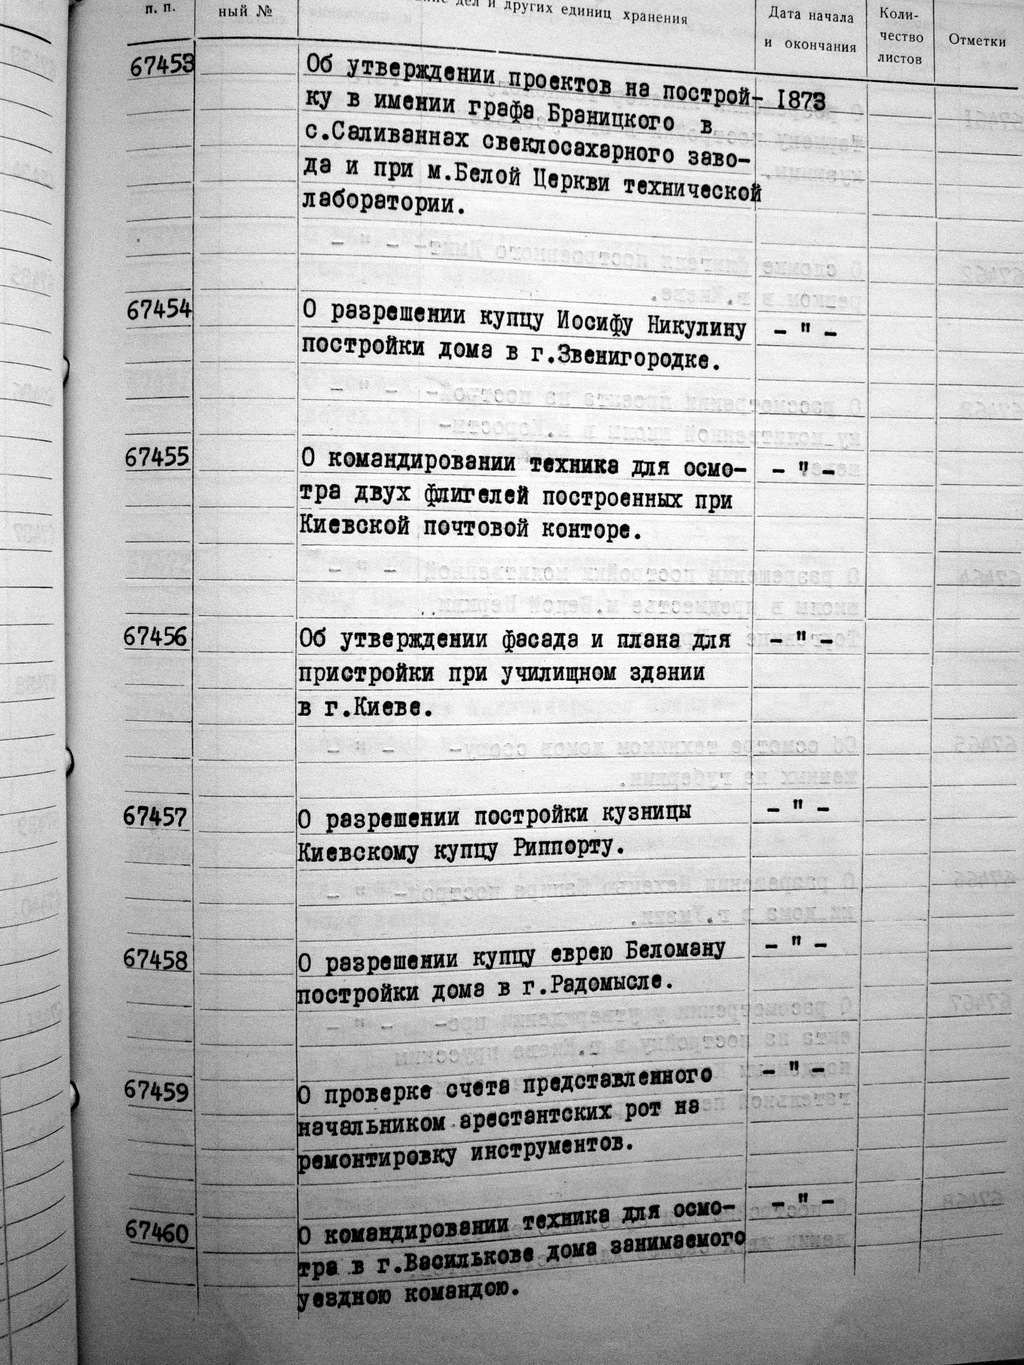 п. п.
ный №
дел и других единиц хранения
Дата начала
и окончания
Коли-
чество
листов
Отметки
67453
Об утверждении проектов на построй- 1873
ку в имении графа Браницкого в
с.Саливаннах свеклосахарного заво-
да и при м.Белой Церкви технической
лаборатории.
67454
О разрешении купцу Иосифу Никулину - " -
постройки дома в г.Звенигородке.
67455
О командировании техника для осмо- - " -
тра двух флигелей построенных при
Киевской почтовой конторе.
67456
Об утверждении фасада и плана для - " -
пристройки при училищном здании
в г.Киеве.
67457
О разрешении постройки кузницы - " -
Киевскому купцу Риппорту.
67458
О разрешении купцу еврею Беломану - " -
постройки дома в г.Радомысле.
67459
О проверке счета представленного - " -
начальником арестантских рот на
ремонтировку инструментов.
67460
О командировании техника для осмо- - " -
тра в г.Василькове дома занимаемого
уездною командою.